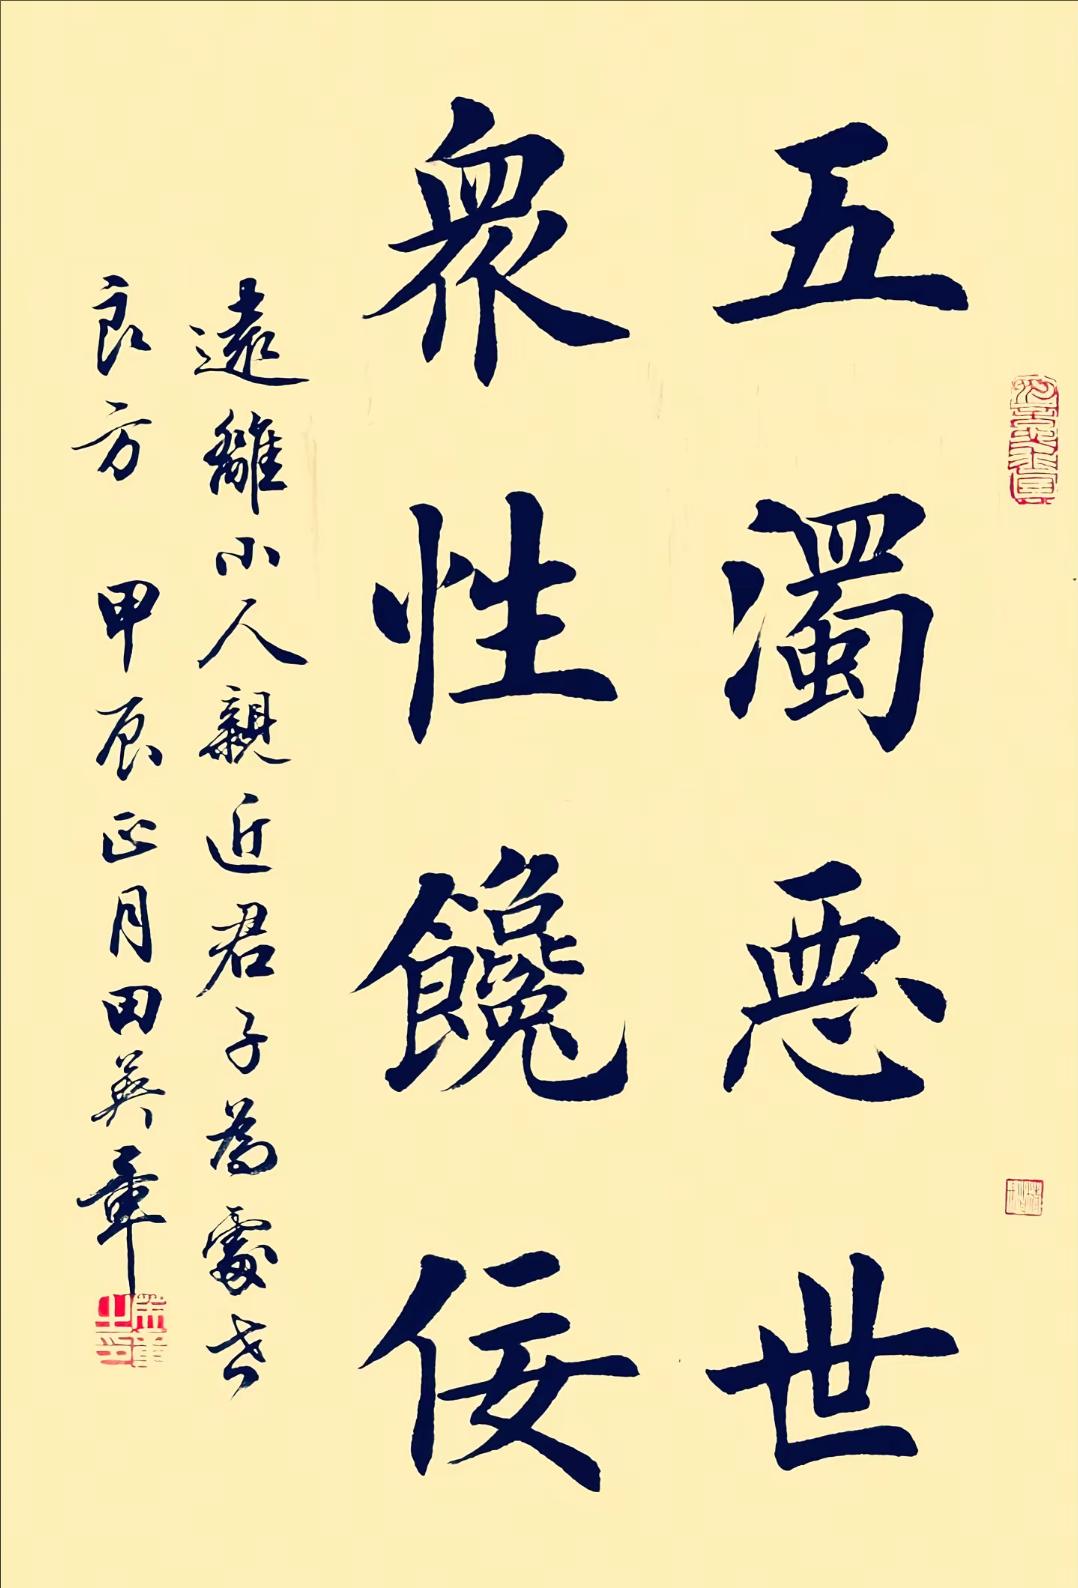 五濁悪世
衆性饞佞
遠離小人親近君子為處世
良方 甲辰正月田英章